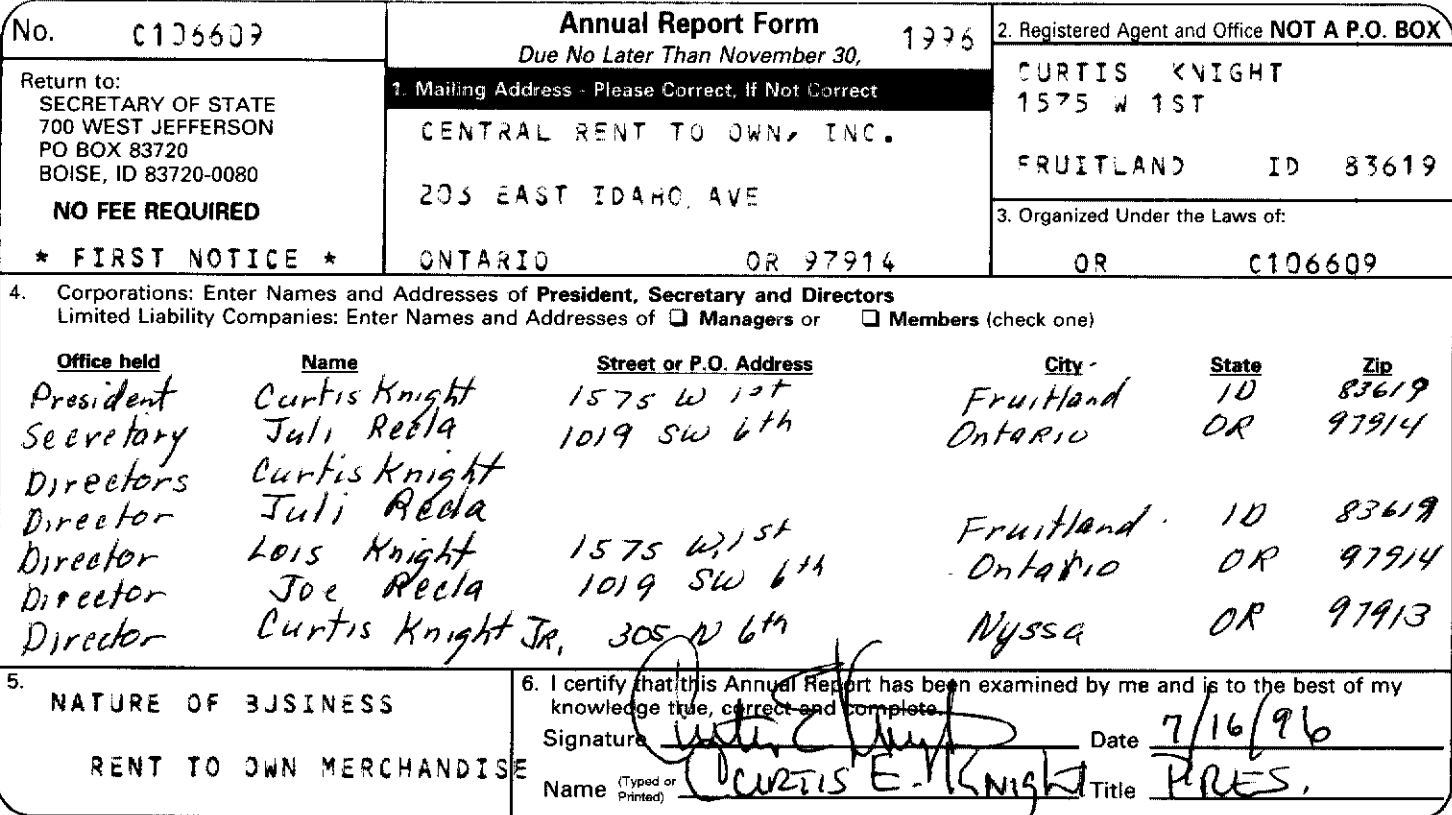 No. C106609
Annual Report Form 1996
Due No Later Than November 30,
Return to:
SECRETARY OF STATE
700 WEST JEFFERSON
PO BOX 83720
BOISE, ID 83720-0080
NO FEE REQUIRED
* FIRST NOTICE *
1. Mailing Address - Please Correct, If Not Correct
CENTRAL RENT TO OWN, INC.
203 EAST IDAHO AVE
ONTARIO OR 97914
2. Registered Agent and Office NOT A P.O. BOX
CURTIS KNIGHT
1575 W 1ST
FRUITLAND ID 83619
3. Organized Under the Laws of:
OR C106609
4. Corporations: Enter Names and Addresses of President, Secretary and Directors
Limited Liability Companies: Enter Names and Addresses of ❑ Managers or ❑ Members (check one)
Office held Name Street or P.O. Address City State Zip
President Curtis Knight 1575 W 1st Fruitland ID 83619
Secretary Juli Recla 1019 SW 6th Ontario OR 97914
Directors Curtis Knight
Director Juli Recla
Director Lois Knight 1575 W. 1st Fruitland ID 83619
Director Joe Recla 1019 SW 6th Ontario OR 97914
Director Curtis Knight JR. 305 N 6th Nyssa OR 97913
5. NATURE OF BUSINESS
RENT TO OWN MERCHANDISE
6. I certify that this Annual Report has been examined by me and is to the best of my
knowledge true, correct and complete.
Signature Date 7/16/96
Name (Typed or Printed) CURTIS E. KNIGHT Title PRES.